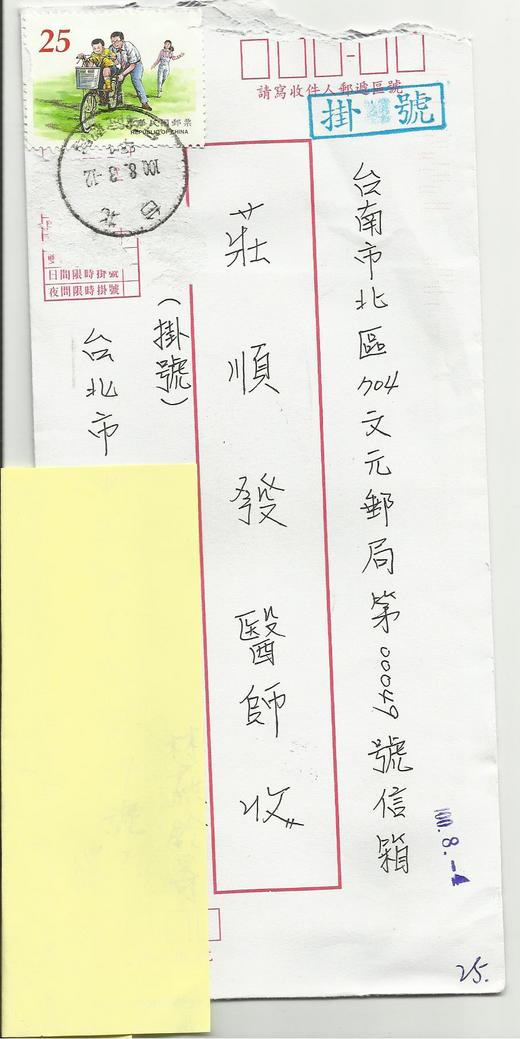 25
中華民國郵票
REPUBLIC OF CHINA
100.8.3-12
台北
請寫收件人郵遞區號
掛號
台南市北區704文元郵局第00049號信箱
莊順發醫師收
(掛號)
日間限時掛號
夜間限時掛號
台北市
100.8.-4
25.